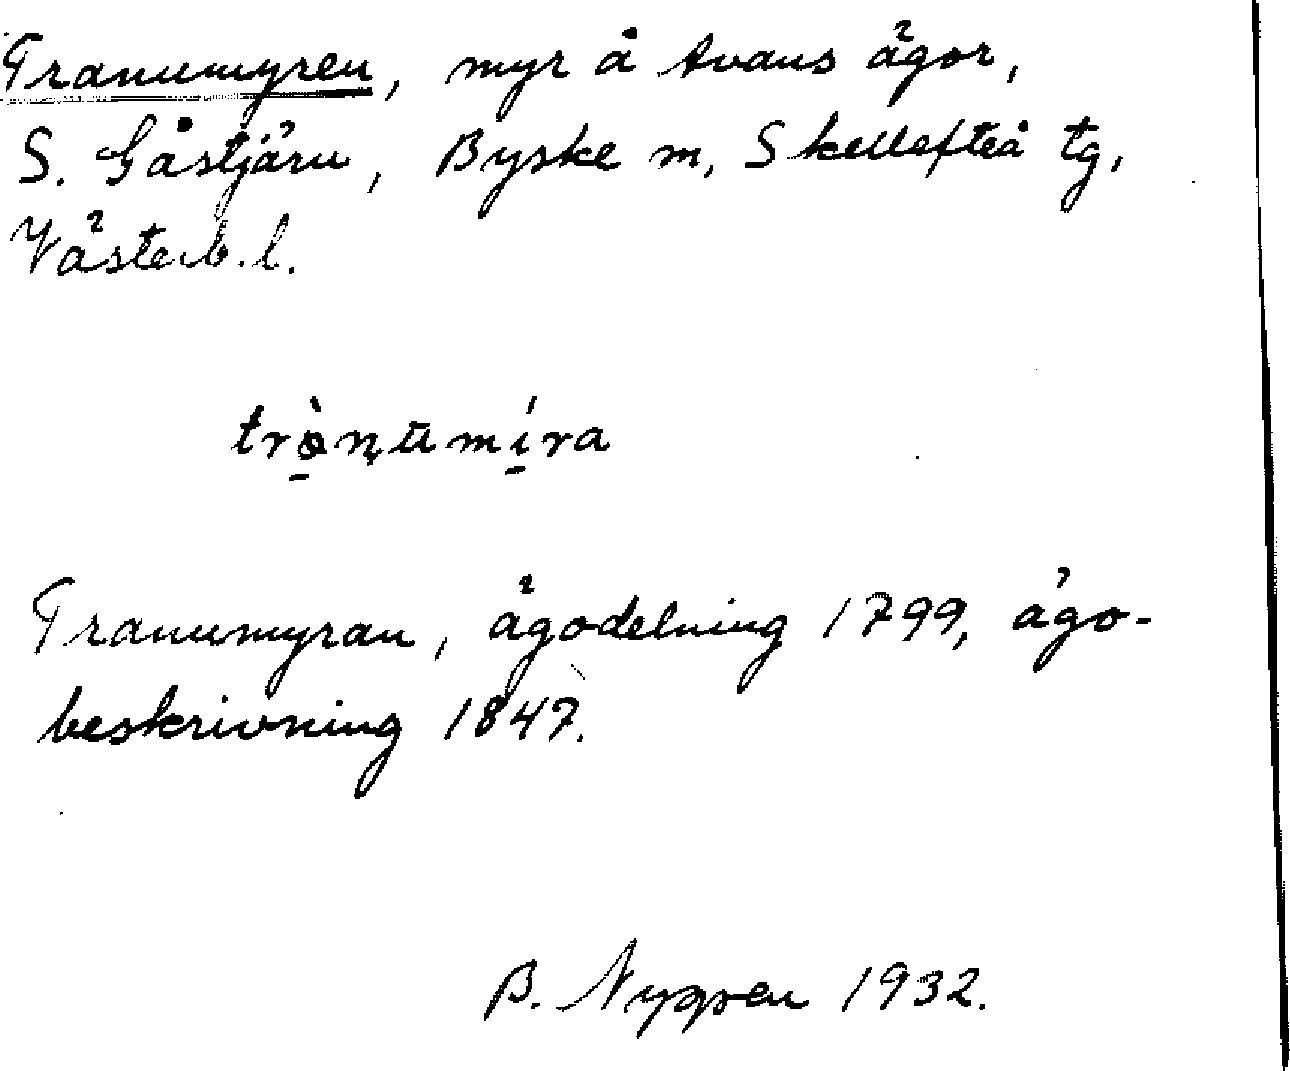 Tranumyren, myr å Avans ägor,
S. Gåstjärn, Byske sn, Skellefteå tg,
Västerb. l.
trànumíra
Tranumyran, ägodelning 1799, ägo-
beskrivning 1847.
B. Nygren 1932.